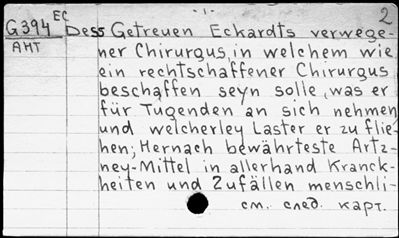 - 1 - 2
G394 EC Dess Getreuen Eckardts verwege-
AMT ner Chirurgus, in welchem wie
ein rechtschaffener Chirurgus
beschaffen seyn solle, was er
für Tugenden an sich nehmen
und welcherley Laster er zu flie-
hen; Hernach bewährteste Artz-
ney-Mittel in allerhand Kranck-
heiten und Zufällen menschli-
см. след. карт.